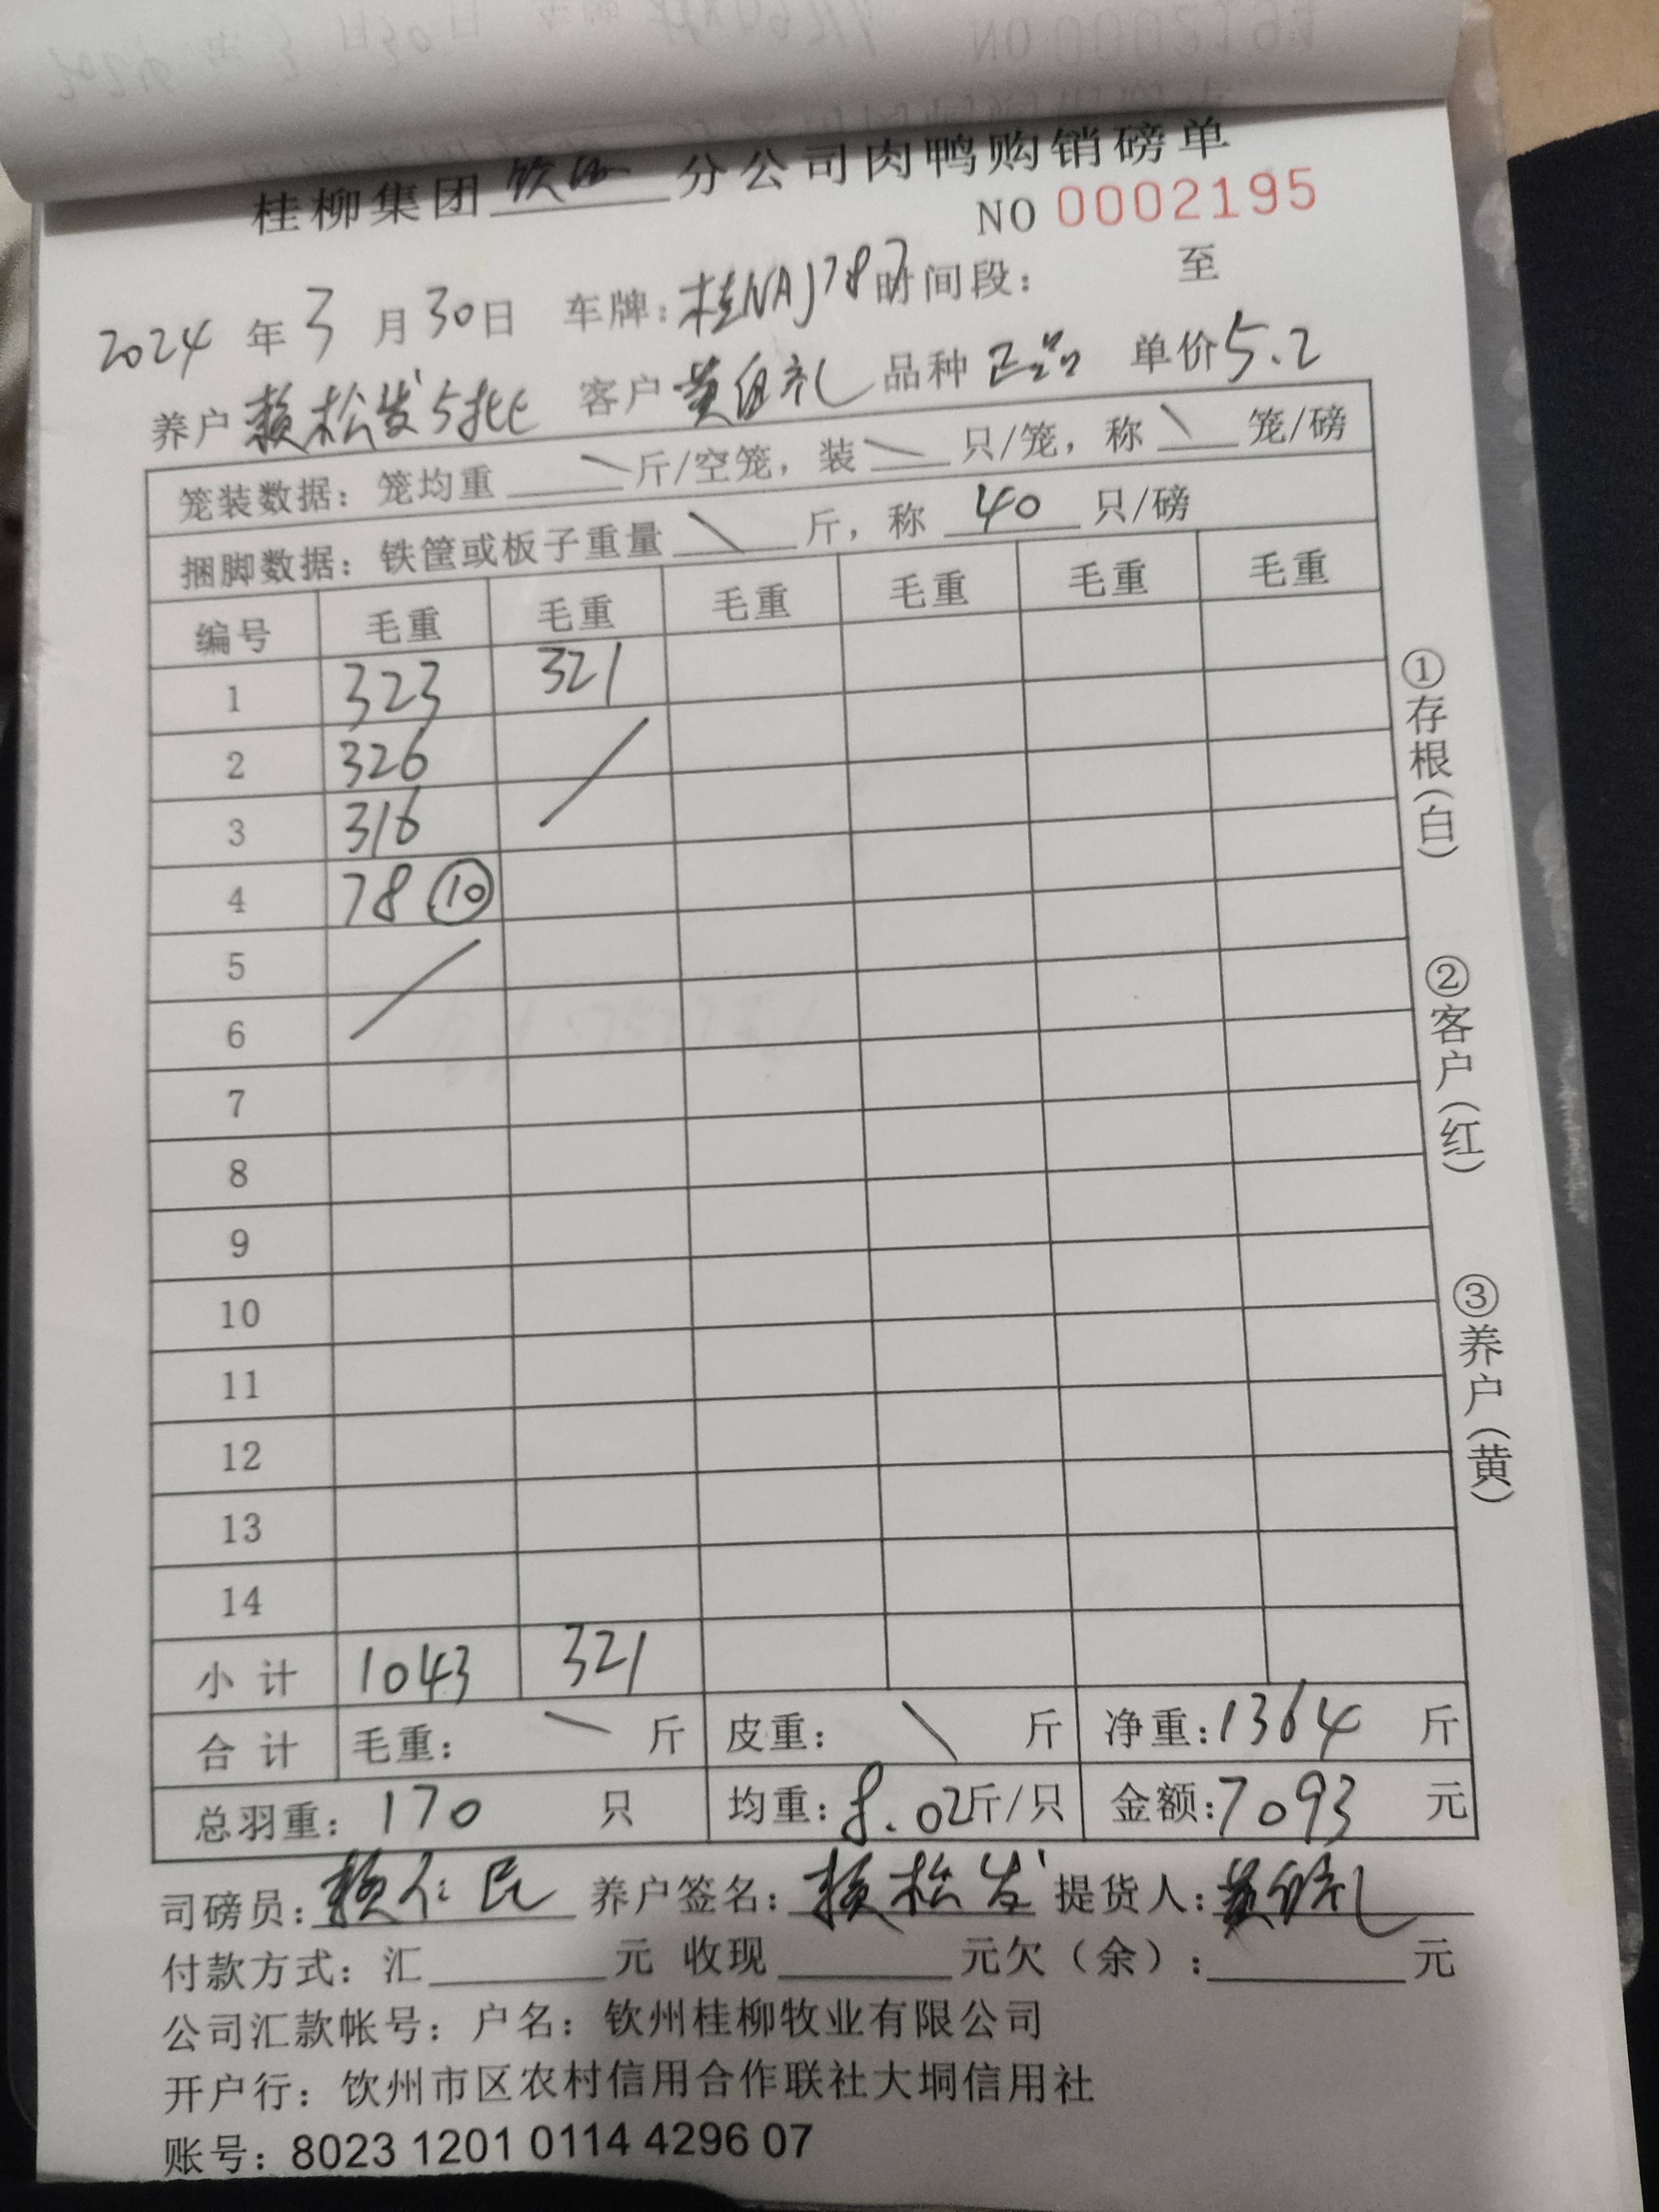 桂柳集团钦州分公司肉鸭购销磅单
NO 0002195
2024年3月30日 车牌:桂NAJ787 时间段: 至
养户 赖松发5批 客户 黄组礼 品种 正品 单价5.2
笼装数据: 笼均重 \ 斤/空笼, 装 \ 只/笼, 称 \ 笼/磅
捆脚数据: 铁筐或板子重量 \ 斤, 称 40 只/磅
编号 毛重 毛重 毛重 毛重 毛重 毛重
1 323 321
2 326
3 316
4 78 ⑩
5
6
7
8
9
10
11
12
13
14
小计 1043 321
合计 毛重: \ 斤 皮重: \ 斤 净重:1364 斤
总羽重: 170 只 均重:8.02斤/只 金额:7093 元
司磅员:赖仁民 养户签名:赖松发 提货人:黄组礼
付款方式: 汇______元 收现______元欠(余):______元
公司汇款帐号: 户名: 钦州桂柳牧业有限公司
开户行: 饮州市区农村信用合作联社大垌信用社
账号: 8023 1201 0114 4296 07
①存根(白)
②客户(红)
③养户(黄)